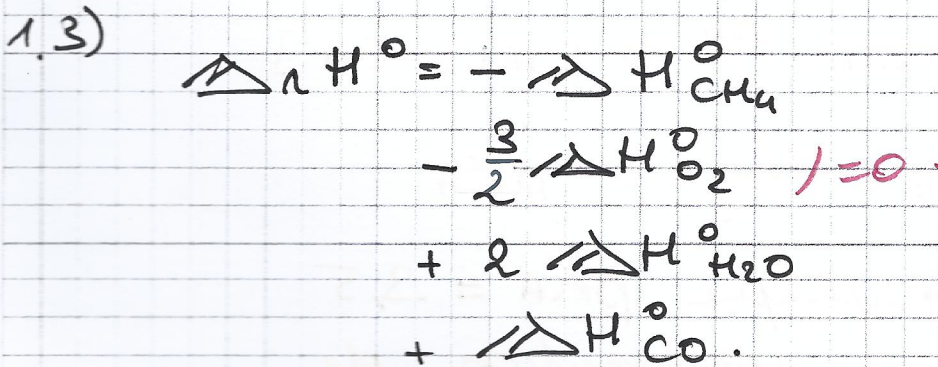 1.3)
Δr H° = - Δ H°CH4
- 3/2 Δ H°O2 ) = 0.
+ 2 Δ H°H2O
+ Δ H°CO.